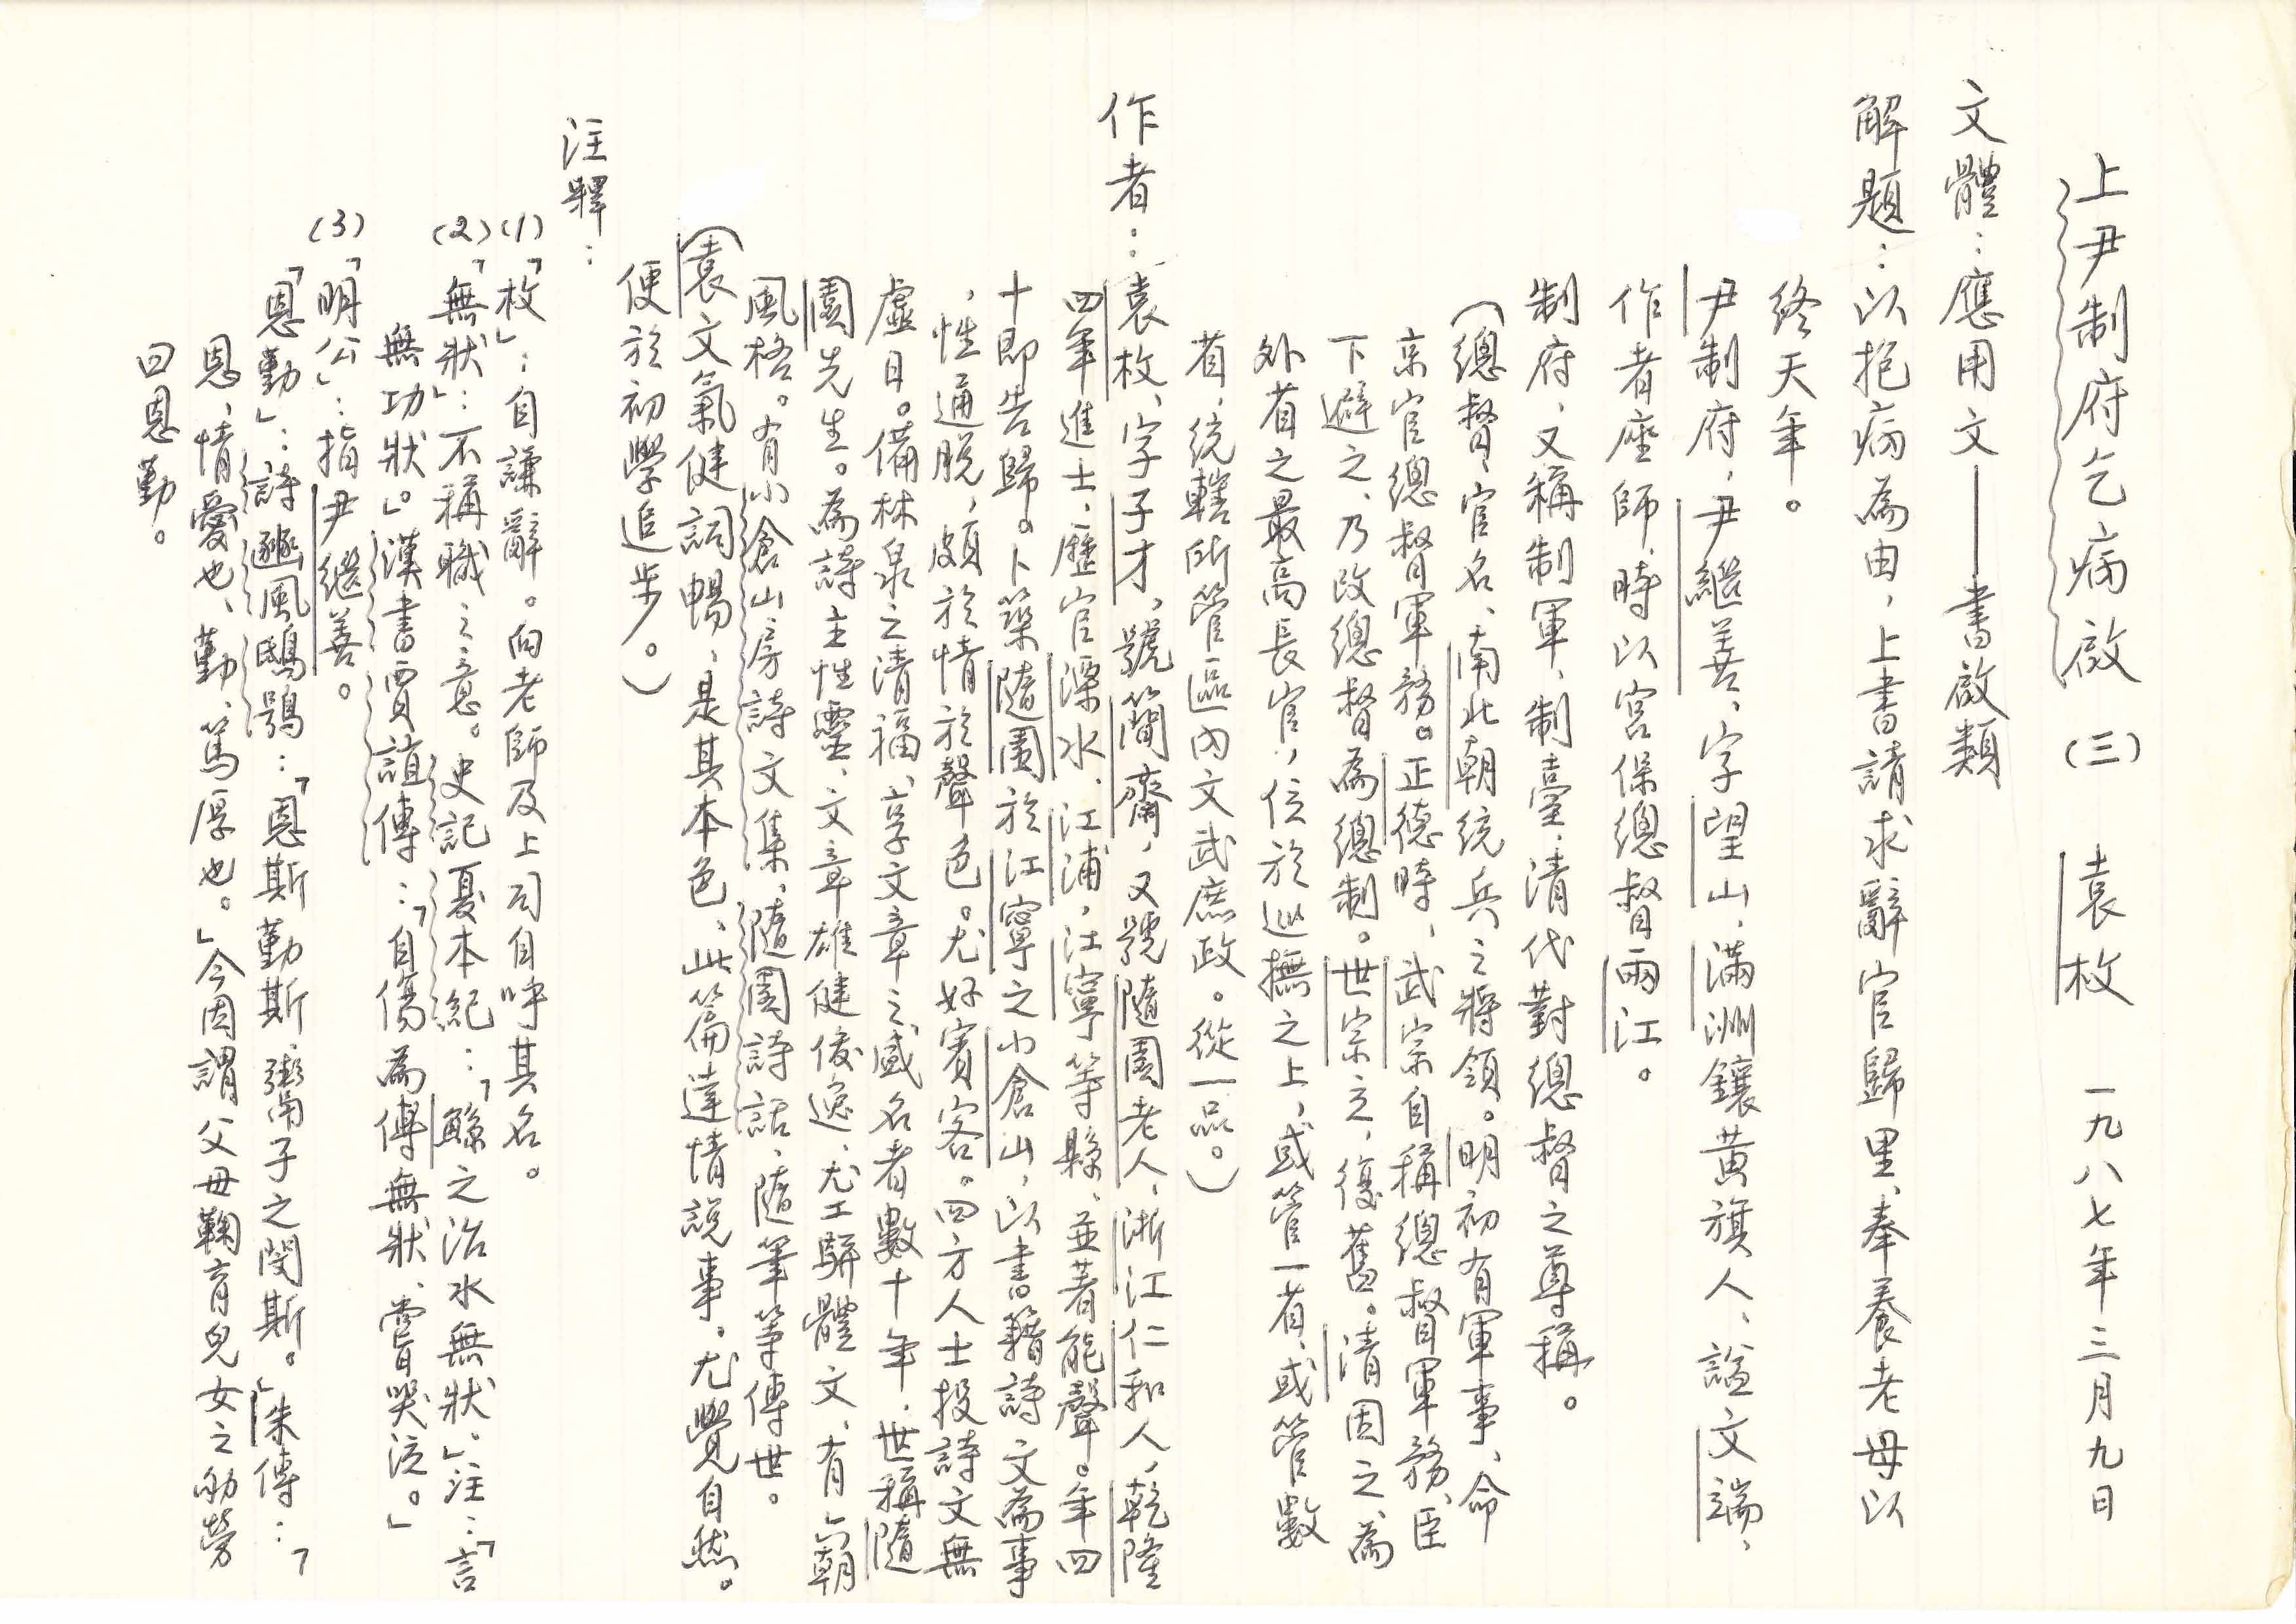 上尹制府乞病啟（三） 袁枚 一九八七年三月九日
文體：應用文——書啟類
解題：以抱病為由，上書請求辭官歸里、奉養老母以
終天年。
尹制府，尹繼善、字望山，滿洲鑲黃旗人、諡文端、
作者座師，時以宮保總督兩江。
制府，又稱制軍、制臺，清代對總督之尊稱。
（總督，官名、南北朝統兵之將領。明初有軍事、命
京官總督軍務。正德時，武宗自稱總督軍務、臣
下避之、乃改總督為總制。世宗立，復舊。清因之、為
外省之最高長官，位於巡撫之上，或管一省、或管數
省，統轄所管區內文武庶政。從一品。）
作者：袁枚、字子才，號簡齋，又號隨園老人，浙江仁和人，乾隆
四年進士，歷官溧水、江浦，江寧等縣、並著能聲。年四
十即告歸。卜築隨園於江寧之小倉山，以書籍詩文為事
，性通脫，頗於情於聲色。尤好賓客。四方人士投詩文無
虛日。備林泉之清福、享文章之盛名者數十年，世稱隨
園先生。為詩主性靈、文章雄健俊逸、尤工駢體文、有六朝
風格。有小倉山房詩文集，隨園詩話、隨筆等傳世。
（袁文氣健詞暢，是其本色、此篇達情說事。尤覺自然。
便於初學追步。）
注釋：
(1)「枚」：自謙辭。向老師及上司自呼其名。
(2)「無狀」：不稱職之意。史記夏本紀：「鯀之治水無狀。」注：「言
無功狀。」漢書賈誼傳：「自傷為傅無狀、嘗哭泣。」
(3)「明公」：指尹繼善。
「恩勤」：詩豳風鴟鴞：「恩斯勤斯，鬻子之閔斯。」朱傳：「
恩、情愛也、勤、篤厚也。」今因謂父母鞠育兒女之劬勞
曰恩勤。